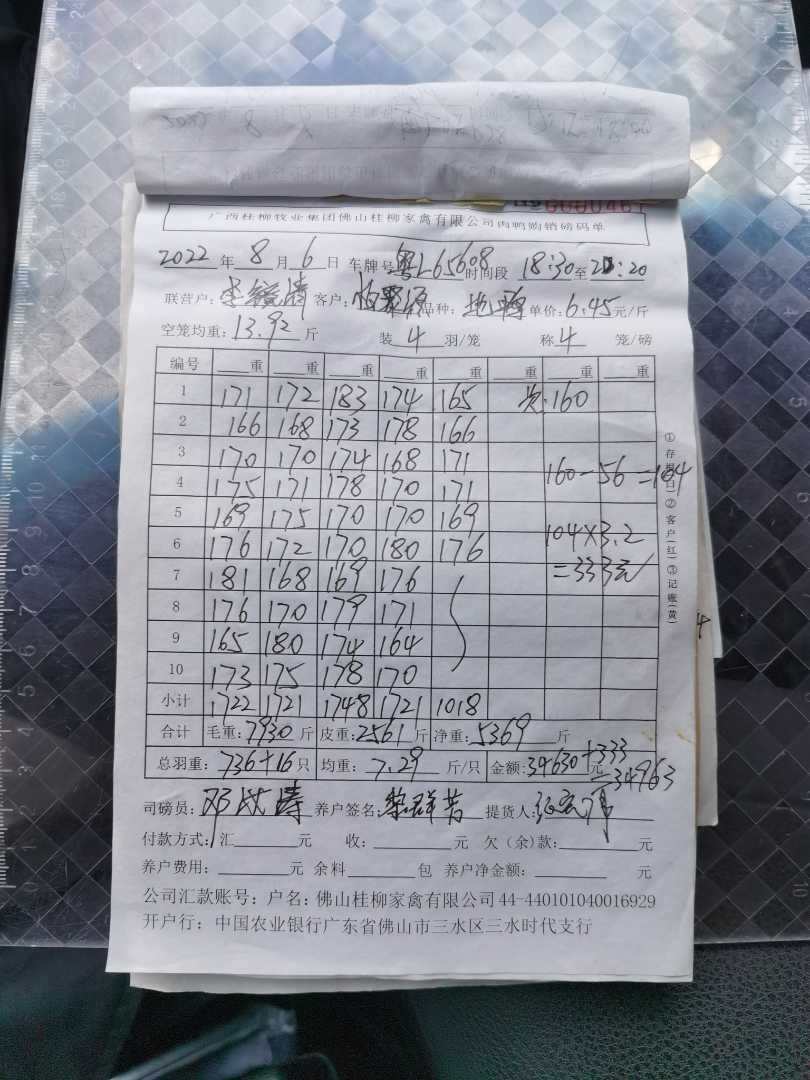 № 0000461
广西桂柳牧业集团佛山桂柳家禽有限公司肉鸭购销磅码单
2022 年 8 月 6 日 车牌号 粤L65608 时间段 18:30 至 20:20
联营户: 客户: 品种: 单价: 6.45 元/斤
空笼均重: 13.92 斤 装 4 羽/笼 称 4 笼/磅
编号 重 重 重 重 重 重 重 重
1 171 172 183 174 165 次:160
2 166 168 173 178 166
3 170 170 174 168 171 160-56=104
4 175 171 178 170 171
5 169 175 170 170 169 104×3.2
6 176 172 170 180 176 =333元
7 181 168 169 176
8 176 170 179 171
9 165 180 174 164
10 173 175 178 170
小计 1722 1721 1748 1721 1018
合计 毛重: 7930 斤 皮重: 2561 斤 净重: 5369 斤
总羽重: 736+16 只 均重: 7.29 斤/只 金额: 34630 元 +333
=34963
司磅员: 养户签名: 黎群芳 提货人:
付款方式: 汇 元 收: 元 欠(余)款: 元
养户费用: 元 余料 包 养户净金额: 元
公司汇款账号: 户名: 佛山桂柳家禽有限公司 44-440101040016929
开户行: 中国农业银行广东省佛山市三水区三水时代支行
①存根(白)②客户(红)③记账(黄)